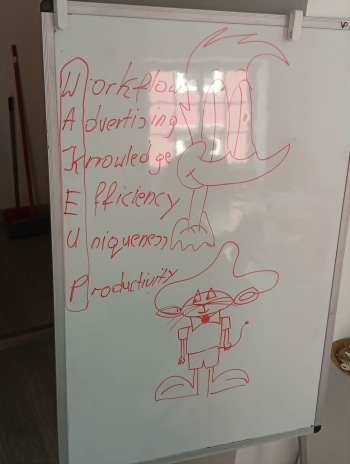 Workflow
Advertising
Knowledge
Efficiency
Uniqueness
Productivity